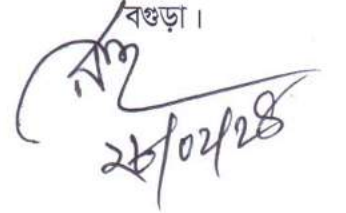 বগুড়া।
২৮/০২/২৪